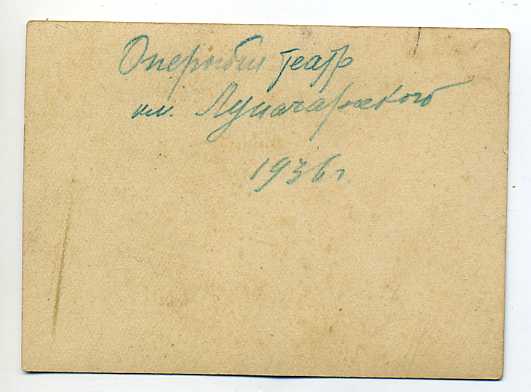 Оперный театр
им. Луначарского
1936 г.